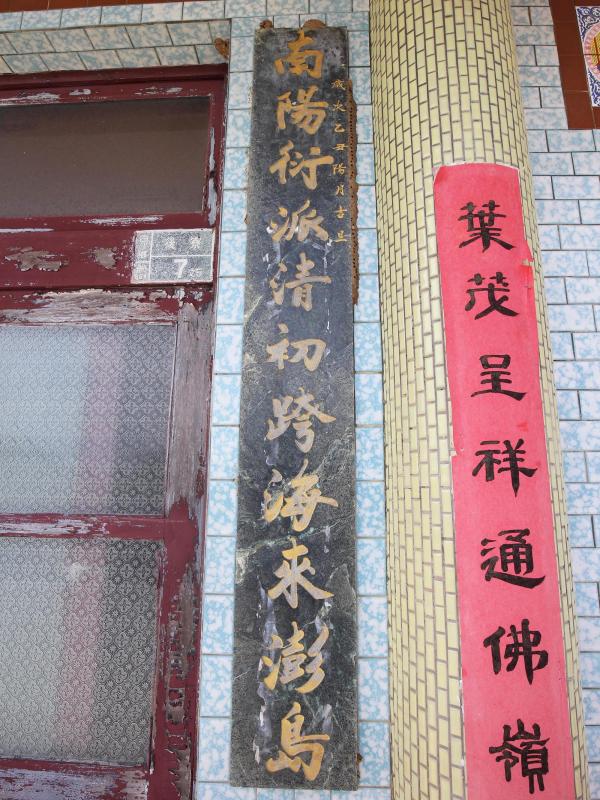 葉茂呈祥通佛嶺
歲次乙丑陽月吉旦
南陽衍派清初跨海來澎島
7